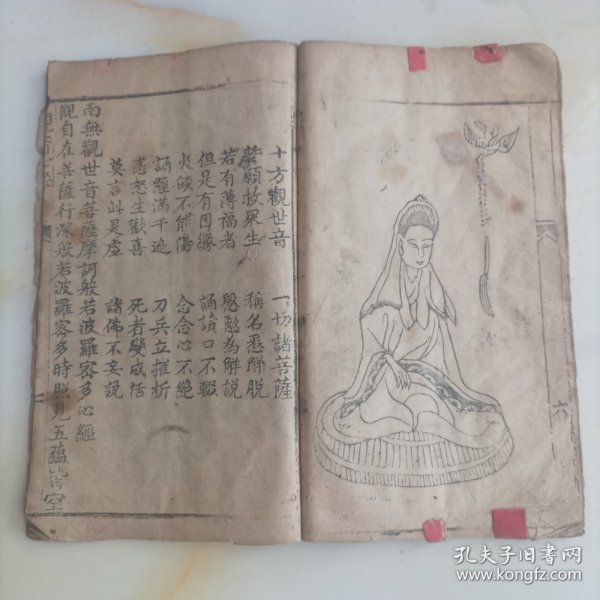 六
十方觀世音 一切諸菩薩
誓願救眾生 稱名悉解脫
若有薄福者 慇懃為解說
但是有因緣 誦讀口不輟
誦經滿千遍 念念心不絕
火燄不能傷 刀兵立摧折
恚怒生歡喜 死者變成活
莫言此是虛 諸佛不妄說
南無觀世音菩薩摩訶般若波羅密多心經
觀自在菩薩行深般若波羅密多時照見五蘊皆空
孔夫子旧书网
www.kongfz.com